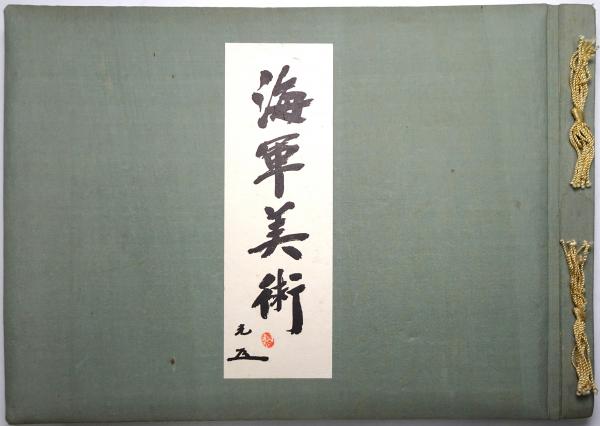 海軍美術
元五